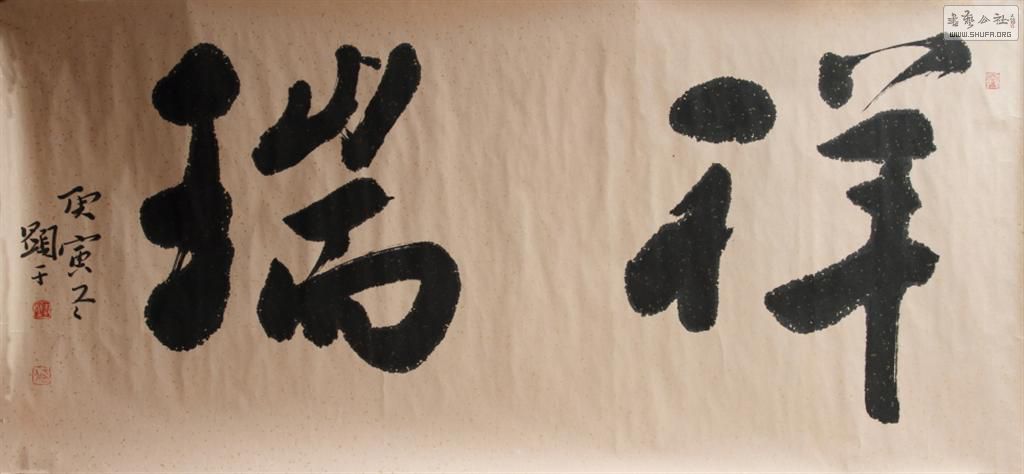 祥瑞
庚寅冬
书艺公社
WWW.SHUFA.ORG